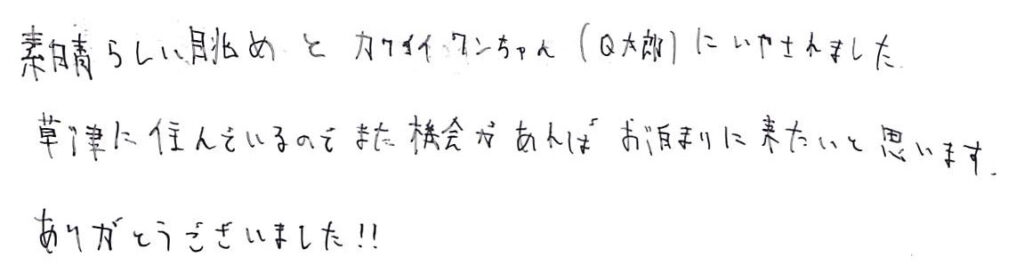 素晴らしい眺めとカワイイワンちゃん(Q太郎)にいやされました
草津に住んでいるのでまた機会があればお泊まりに来たいと思います.
ありがとうございました!!